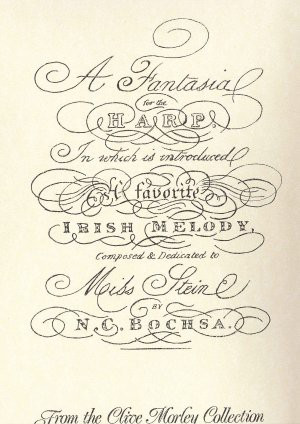 A Fantasia
for the
HARP.
In which is introduced
A favorite
IRISH MELODY,
Composed & Dedicated to
Miss Stein
BY
N. C. BOCHSA.
From the Clive Morley Collection